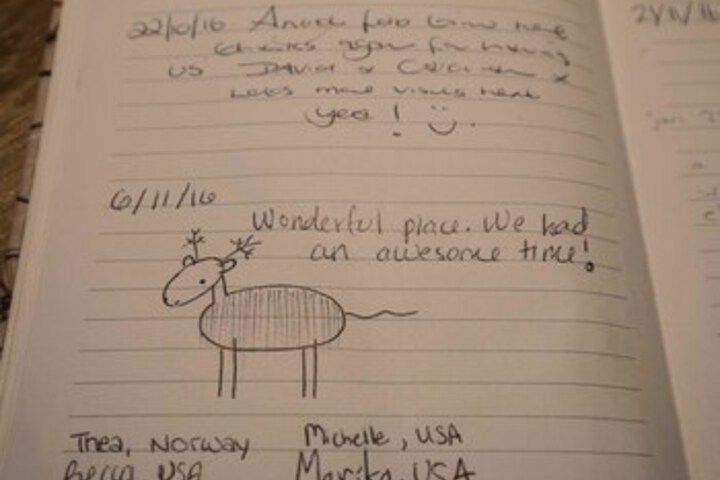 22/10/16 Another time here
thanks again for having
us David & x
Lots more visits next
year!
6/11/16
Wonderful place. We had
an awesome time!
Thea, Norway Michelle, USA
Becca, USA Marika, USA